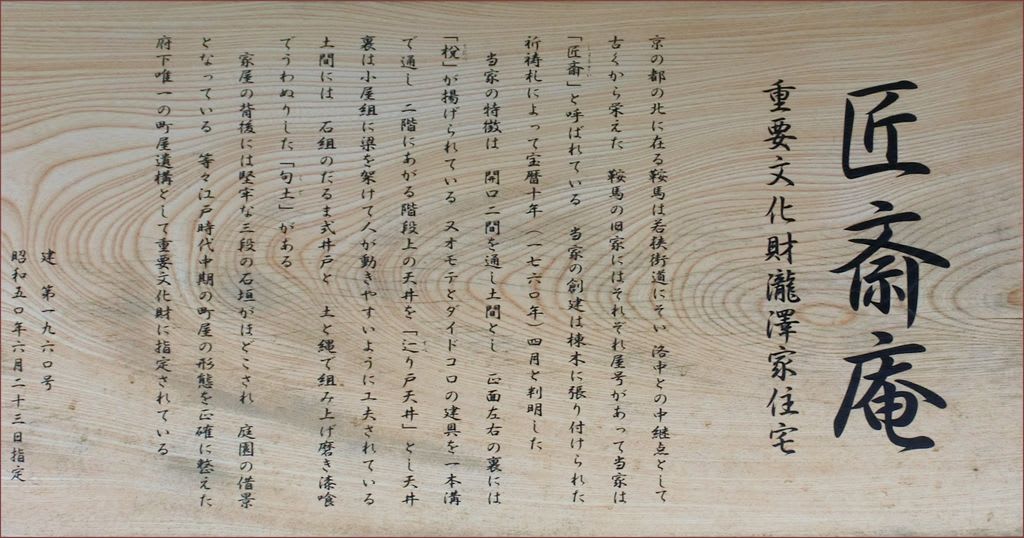 匠斎庵
重要文化財瀧澤家住宅
京の都の北に在る鞍馬は若狭街道にそい 洛中との中継点として
古くから栄えた 鞍馬の旧家にはそれぞれ屋号があって当家は
「匠斎」と呼ばれている 当家の創建は棟木に張り付けられた
祈祷札によって宝暦十年(一七六〇年)四月と判明した
当家の特徴は 開口二間を通し土間とし 正面左右の裏には
「梲」が揚げられている 又オモテとダイドコロの建具を一本溝
で通し 二階にあがる階段上の天井を「辷り戸天井」とし天井
裏は小屋組に梁を架けて人が動きやすいように工夫されている
土間には 石組のだるま式井戸と 土と縄で組み上げ磨き漆喰
でうわぬりした「句土」がある
家屋の背後には堅牢な三段の石垣がほどこされ 庭園の借景
となっている 等々江戸時代中期の町屋の形態を正確に整えた
府下唯一の町屋遺構として重要文化財に指定されている
建 第一九六〇号
昭和五〇年六月二十三日指定